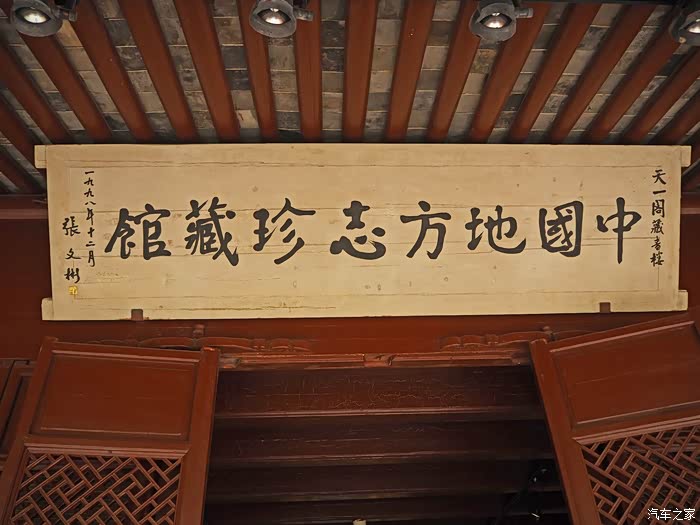 天一閣藏書樓
中國地方志珍藏館
一九九八年十二月
張文彬
汽车之家